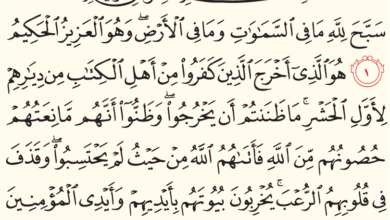 سَبَّحَ لِلَّهِ مَا فِى ٱلسَّمَـٰوَٰتِ وَمَا فِى ٱلْأَرْضِ ۖ وَهُوَ ٱلْعَزِيزُ ٱلْحَكِيمُ
١ هُوَ ٱلَّذِىٓ أَخْرَجَ ٱلَّذِينَ كَفَرُوا۟ مِنْ أَهْلِ ٱلْكِتَـٰبِ مِن دِيَـٰرِهِمْ
لِأَوَّلِ ٱلْحَشْرِ ۚ مَا ظَنَنتُمْ أَن يَخْرُجُوا۟ ۖ وَظَنُّوٓا۟ أَنَّهُم مَّانِعَتُهُمْ
حُصُونُهُم مِّنَ ٱللَّهِ فَأَتَىٰهُمُ ٱللَّهُ مِنْ حَيْثُ لَمْ يَحْتَسِبُوا۟ ۖ وَقَذَفَ
فِى قُلُوبِهِمُ ٱلرُّعْبَ ۚ يُخْرِبُونَ بُيُوتَهُم بِأَيْدِيهِمْ وَأَيْدِى ٱلْمُؤْمِنِينَ